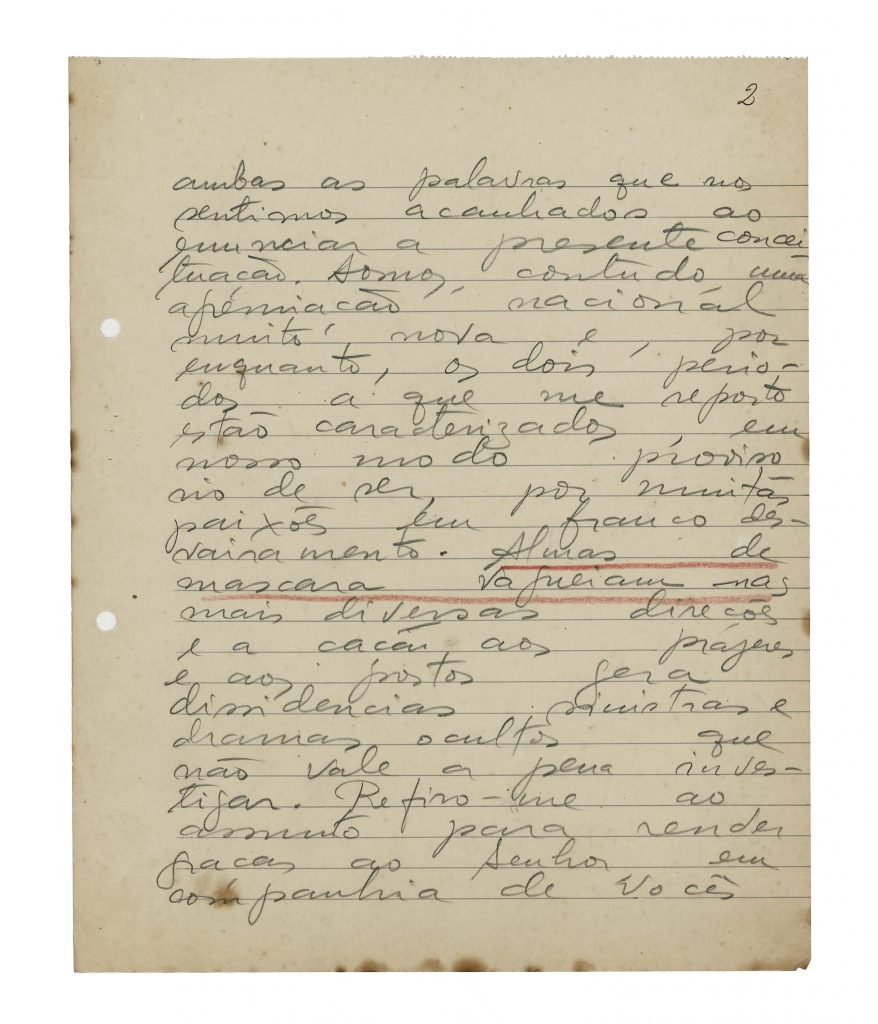 2
ambas as palavras que nos
sentimos acanhados ao
enunciar a presente concei
tuação. Somos, contudo uma
agremiação nacional
muito nova e, por
enquanto, os dois perio-
dos a que me reporto
estão caracterizados, em
nosso modo proviso
rio de ser, por muitas
paixões em franco des-
vairamento. Almas de
mascara vagueiam nas
mais diversas direcões
e a cacão aos prazeres
e aos postos gera
dissidencias sinistras e
dramas ocultos que
não vale a pena inves-
tigar. Refiro-me ao
assunto para render
gracas ao Senhor em
companhia de Vocês